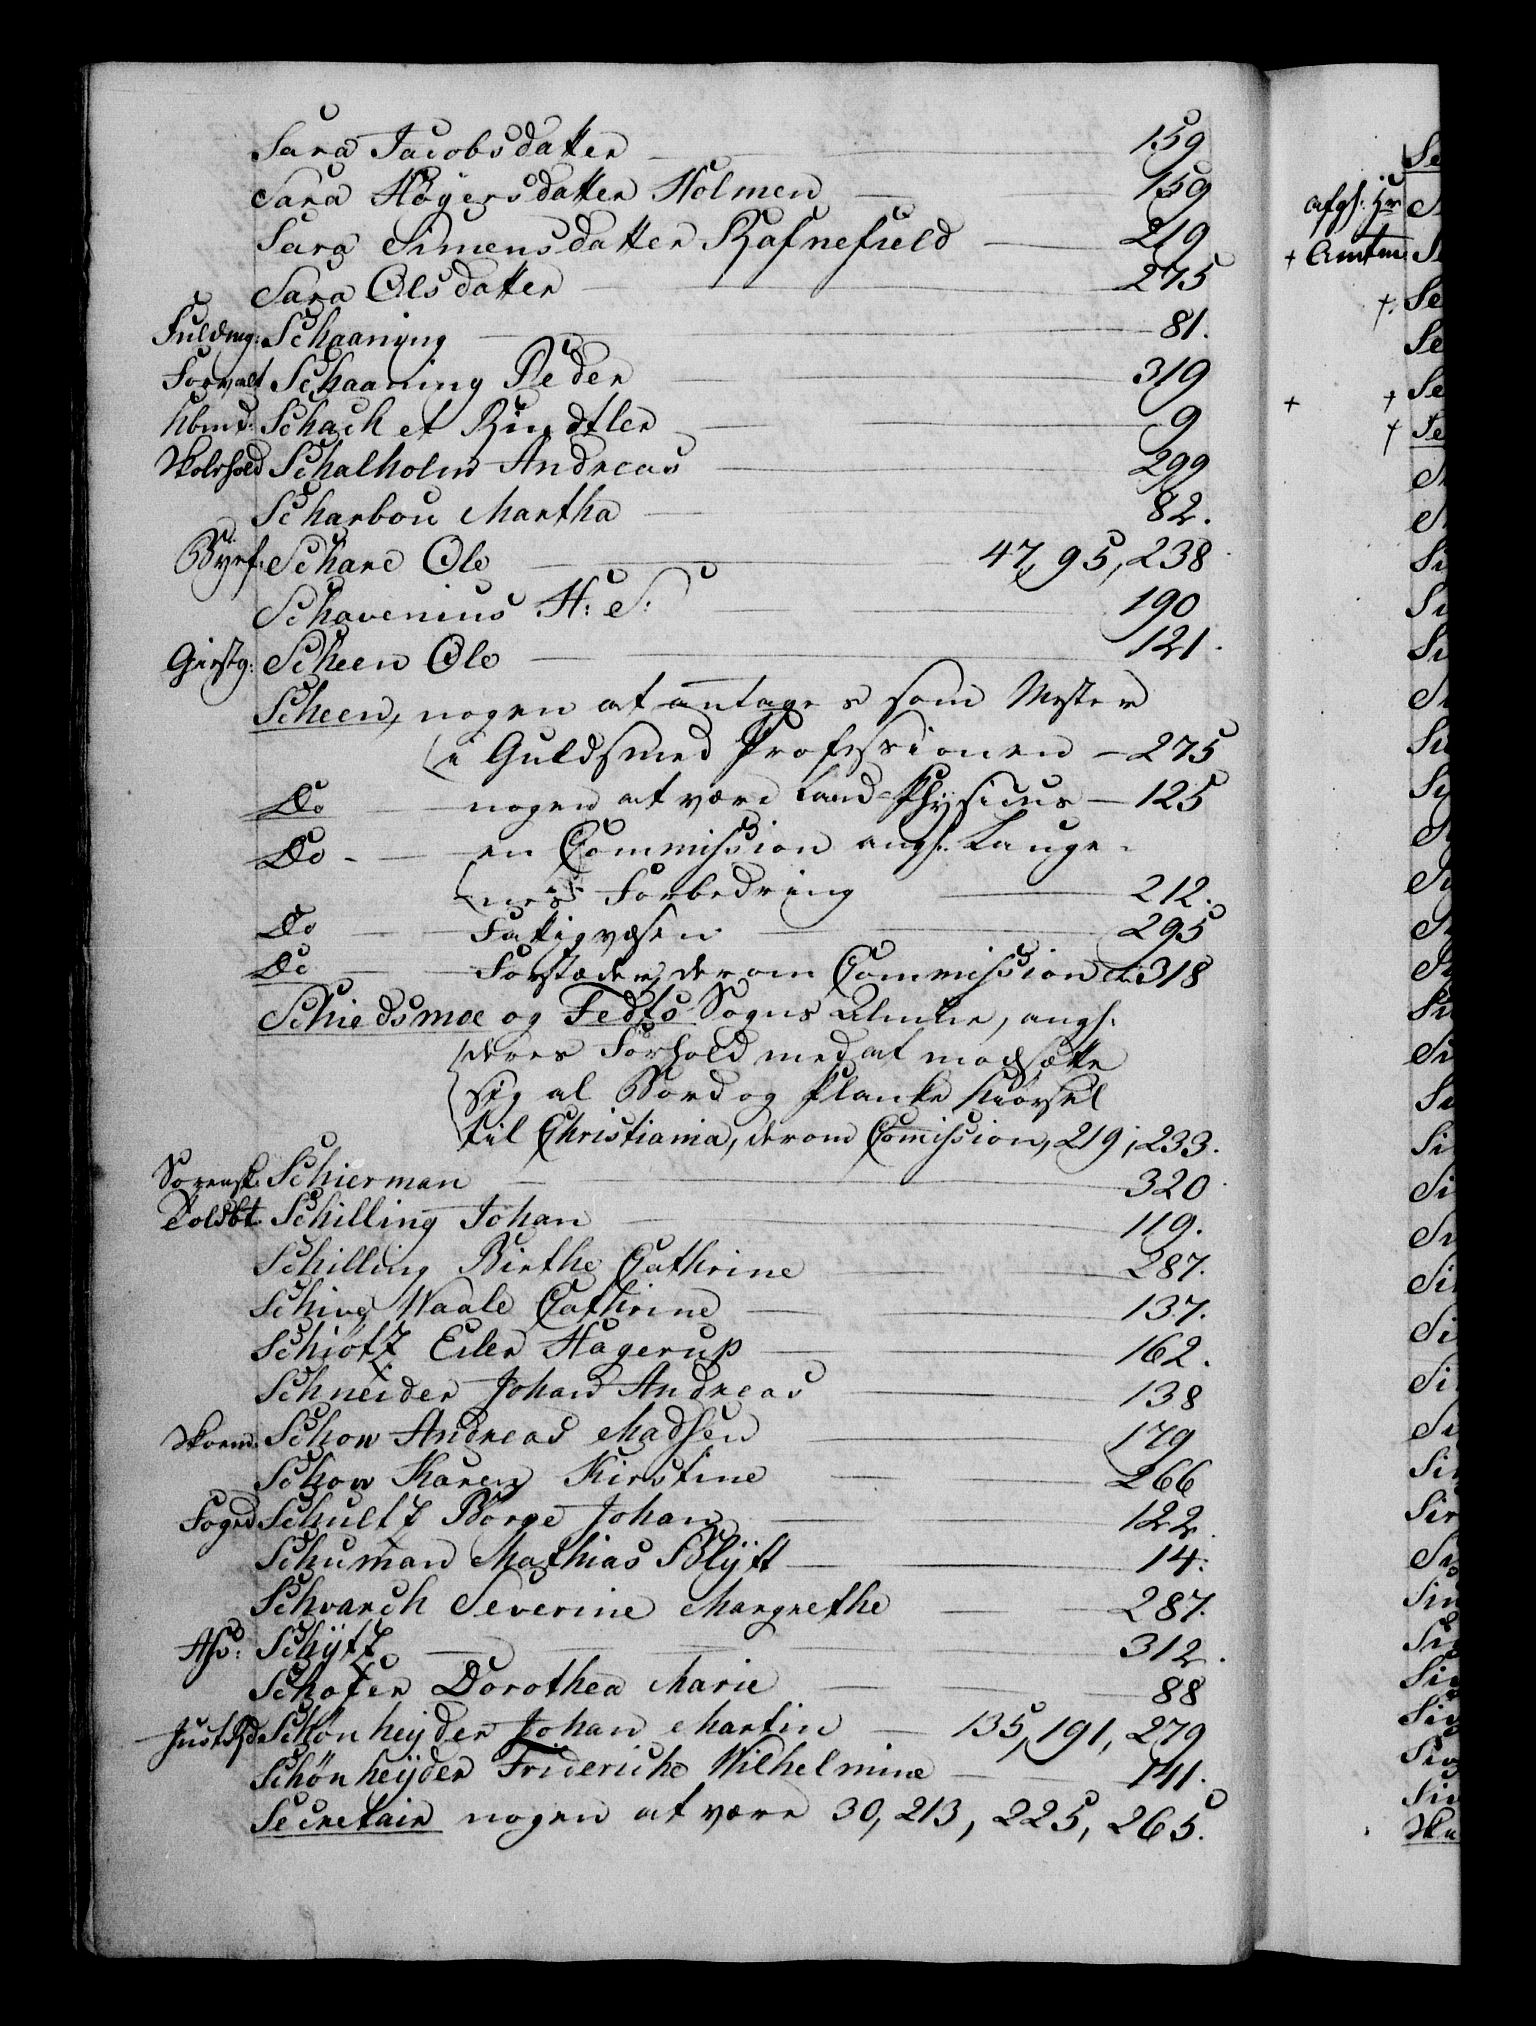 Sara Jacobsdatter — 159
Sara Høyersdatter Holmen — 159
Sara Simensdatter Rafnefield — 219
Sara Olsdatter — 275
Fuldmg: Schaaning — 81.
Forvalt Schaaning Peder — 319
Kbmd: Schach et Bindtler — 9
Skolehold Schalholm Andreas — 299
Scharbou Martha — 82.
Byef: Schare Ole — 47, 95, 238
Schavenius H: S: — 190
Giestg: Scheen Ole — 121.
Scheen, nogen at antages som Mester
i Guldsmed Professionen — 275
Do — nogen at være Land-Physicus — 125
Do — en Commission angh. Lauge-
nes Forbedring — 212.
Do — Fattigvæsen — 295
Do — Forstæder, derom Commission — 318
Schiedsmoe og Fedts Sogns Almue, angh.
deres Forhold med at modsætte
sig al Bord og Planke Kiørsel
til Christiania, derom Comission, 219, 233.
Sorensk: Schierman — 320
Toldbt. Schilling Johan — 119.
Schilling Birthe Cathrine — 287.
Schive Waale Cathrine — 137.
Schiøtz Eiler Hagerup — 162.
Schneider Johan Andreas — 138
Skoem: Schow Andreas Madsen — 179
Schow Karen Kirstine — 266
Foged Schultz Børge Johan — 122.
Schuman Mathias Blÿtt — 14.
Schvarch Severine Margrethe — 287.
Ass: Schÿtz — 312.
Schøfer Dorothea Marie — 88
Justrd Schønheÿder Johan Martin — 135, 191, 279
Schønheÿder Friderich Wilhelmine — 141.
Secretair nogen at være 30, 213, 225, 265.
afgh. Hr
+ Amtm.